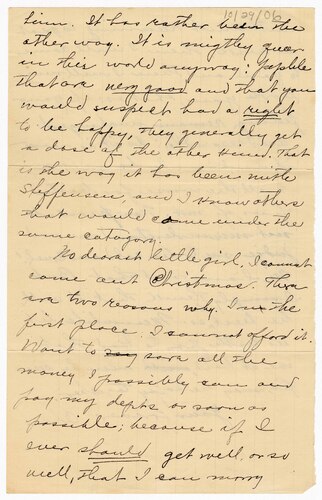 10/29/06
him. It has rather been the
other way. It is migthy queer
in their world anyway; people
that are very good and that you
would suspect had a right
to be happy, they generally get
a dose of the other kind. That
is the way it has been with
Steffensen, and I know others
that would come under the
same category.
No dearest little girl, I cannot
come out Christmas. There
are two reasons why. In the
first place I cannot afford it.
Want to save all the
money I possibly can and
pay my depts as soon as
possible; because if I
ever should get well, or so
well, that I can marry